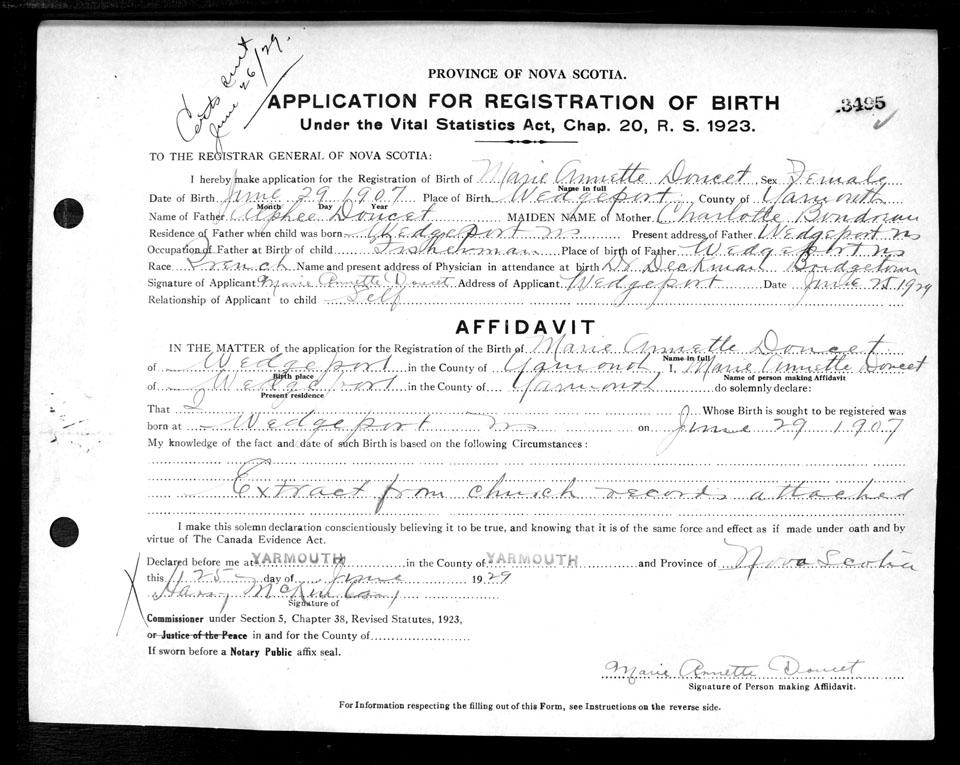 Certs sent
June 26/29.
PROVINCE OF NOVA SCOTIA.
APPLICATION FOR REGISTRATION OF BIRTH
3495
Under the Vital Statistics Act, Chap. 20, R. S. 1923.
TO THE REGISTRAR GENERAL OF NOVA SCOTIA:
I hereby make application for the Registration of Birth of Marie Annette Doucet Sex Female
Name in full
Date of Birth June 29 1907 Place of Birth Wedgeport County of Yarmouth
Month Day Year
Name of Father Alphee Doucet MAIDEN NAME of Mother Charlotte
Residence of Father when child was born Wedgeport NS Present address of Father Wedgeport NS
Occupation of Father at Birth of child Fisherman Place of birth of Father Wedgeport NS
Race French Name and present address of Physician in attendance at birth Dr Deckman Bridgetown
Signature of Applicant Marie Annette Doucet Address of Applicant Wedgeport Date June 25 1929
Relationship of Applicant to child Self
AFFIDAVIT
IN THE MATTER of the application for the Registration of the Birth of Marie Annette Doucet
Name in full
of Wedgeport in the County of Yarmouth, I, Marie Annette Doucet
Birth place Name of person making Affidavit
of Wedgeport in the County of Yarmouth do solemnly declare:
Present residence
That I Whose Birth is sought to be registered was
born at Wedgeport NS on June 29 1907
My knowledge of the fact and date of such Birth is based on the following Circumstances:
Extract from church records attached
I make this solemn declaration conscientiously believing it to be true, and knowing that it is of the same force and effect as if made under oath and by
virtue of The Canada Evidence Act.
Declared before me at YARMOUTH in the County of YARMOUTH and Province of Nova Scotia
this 25 day of June 1929
Signature of
Commissioner under Section 5, Chapter 38, Revised Statutes, 1923,
or Justice of the Peace in and for the County of
If sworn before a Notary Public affix seal.
Marie Annette Doucet
Signature of Person making Affidavit.
For Information respecting the filling out of this Form, see Instructions on the reverse side.